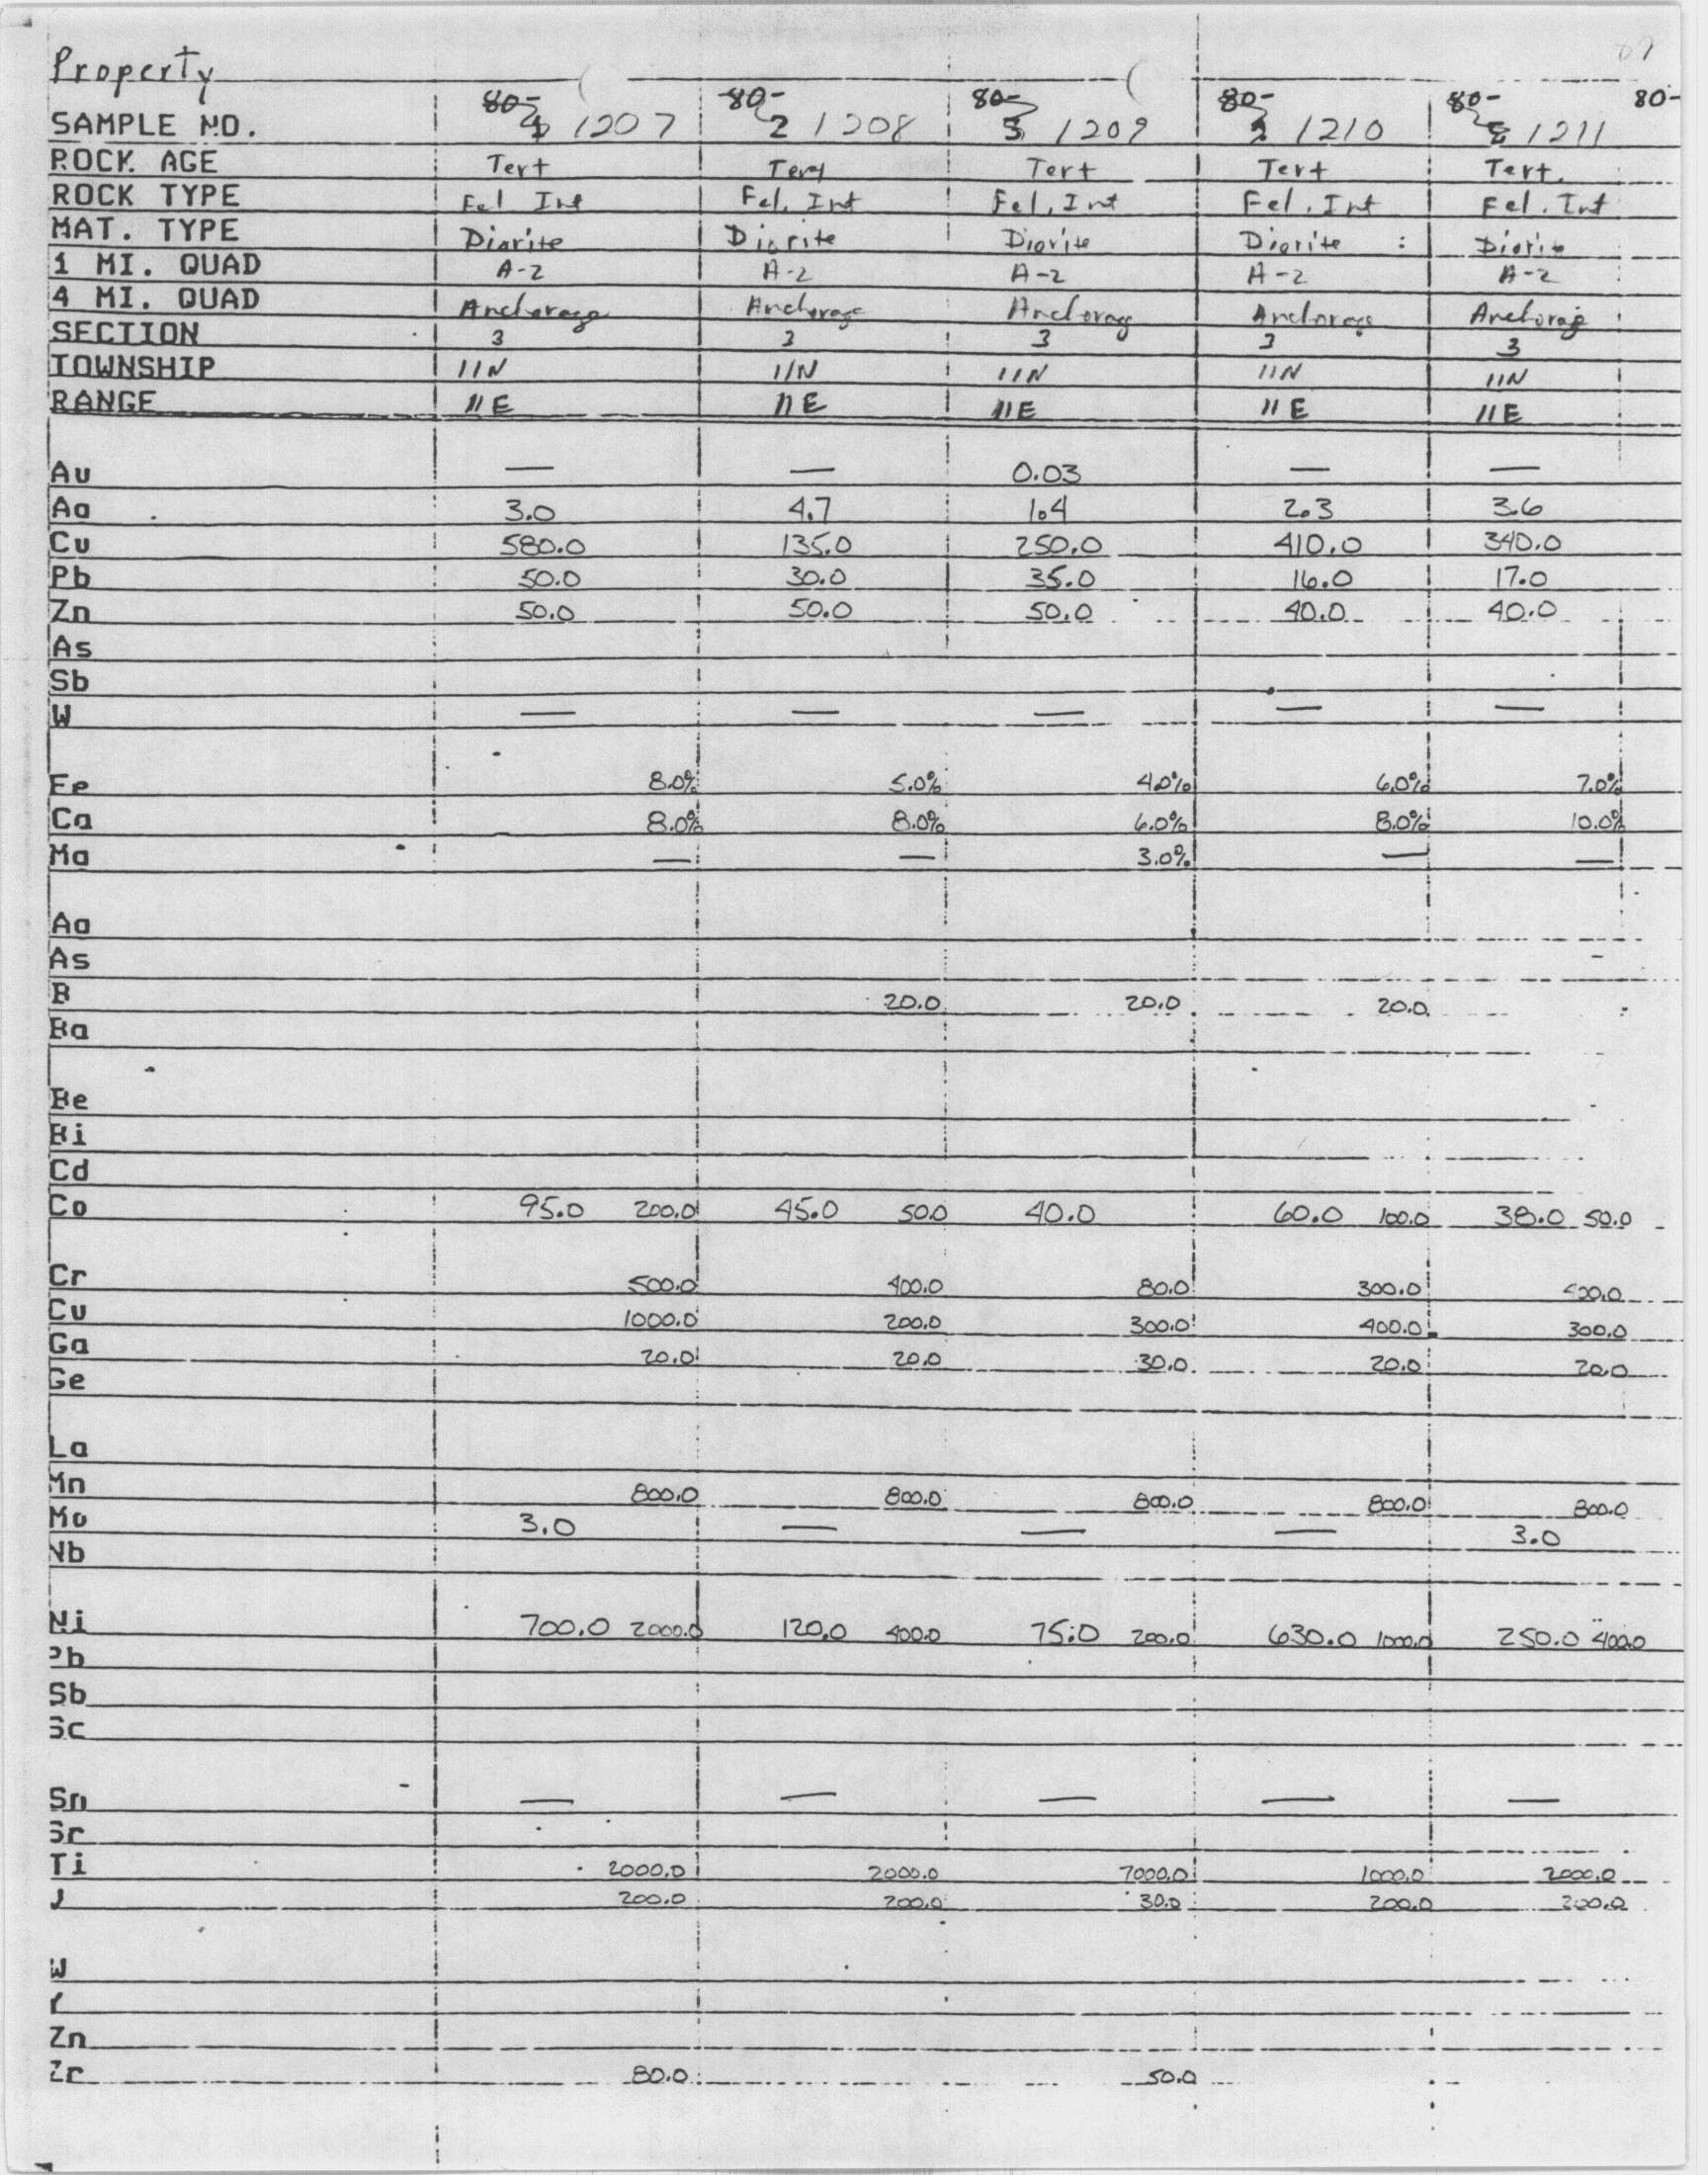 Property
80- 80- 80- 80- 80- 80-
SAMPLE NO. 1207 2 1208 3 1209 1210 1211
ROCK AGE Tert Tert Tert Tert Tert.
ROCK TYPE Fel Int Fel. Int Fel. Int Fel. Int Fel. Int
MAT. TYPE Diorite Diorite Diorite Diorite Diorite
1 MI. QUAD A-2 A-2 A-2 A-2 A-2
4 MI. QUAD Anchorage Anchorage Anchorage Anchorage Anchorage
SECTION 3 3 3 3 3
TOWNSHIP 11N 11N 11N 11N 11N
RANGE 11E 11E 11E 11E 11E
Au — — 0.03 — —
Ag 3.0 4.7 1.4 2.3 3.6
Cu 580.0 135.0 250.0 410.0 340.0
Pb 50.0 30.0 35.0 16.0 17.0
Zn 50.0 50.0 50.0 40.0 40.0
As
Sb
W — — — — —
Fe 8.0% 5.0% 4.0% 6.0% 7.0%
Ca 8.0% 8.0% 6.0% 8.0% 10.0%
Mg — — 3.0% — —
Ag
As
B 20.0 20.0 20.0
Ba
Be
Bi
Cd
Co 95.0 200.0 45.0 50.0 40.0 60.0 100.0 38.0 50.0
Cr 500.0 400.0 80.0 300.0
Cu 1000.0 200.0 300.0 400.0 300.0
Ga 20.0 20.0 30.0 20.0 20.0
Ge
La
Mn 800.0 800.0 800.0 800.0 800.0
Mo 3.0 — — — 3.0
Nb
Ni 700.0 2000.0 120.0 400.0 75.0 200.0 630.0 1000.0 250.0 400.0
Pb
Sb
Sc
Sn — — — — —
Sr
Ti 2000.0 2000.0 7000.0 1000.0 2000.0
V 200.0 200.0 30.0 200.0 200.0
W
Y
Zn
Zr 80.0 50.0